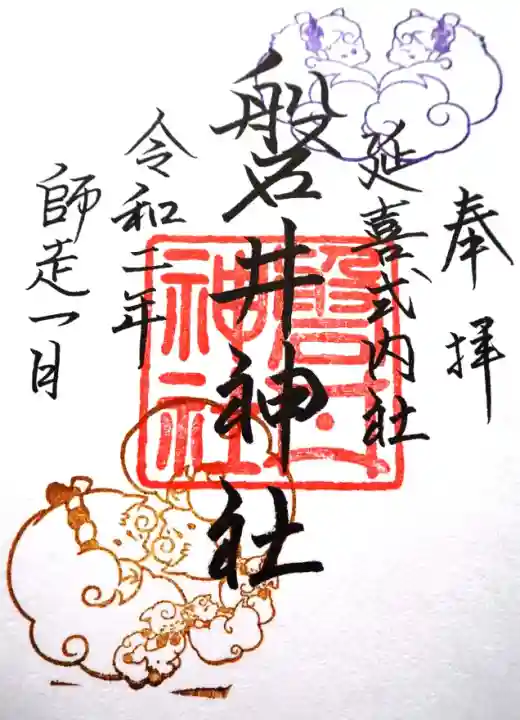 奉拝
延喜式内社
磐井神社
令和二年
師走一日
磐井
神社